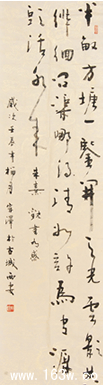 半畝方塘一鑒開天光雲影共
徘徊問渠哪得清如許為有源
頭活水來朱熹觀書有感
歲次壬辰年梅月 於古城西安